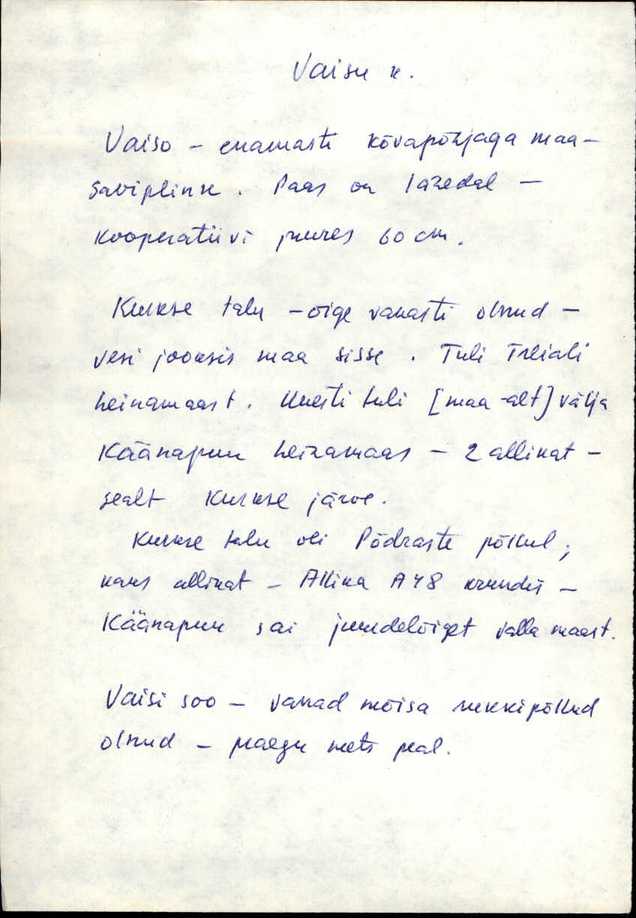 Vaisu k.
Vaiso – enamasti kõvapõhjaga maa –
saviplink. Paas on lähedal –
kooperatiivi juures 60 cm.
Kurkse talu – õige vanasti olnud –
vesi jooksis maa sisse. Tuli
heinamaast. Uuesti tuli [maa-alt] välja
Käänapuu heinamaas – 2 allikat –
sealt Kurkse järve.
Kurkse talu oli Põdraste põllul;
kaks allikat – Allika A48 krundis –
Käänapuu sai juurdelõiget valla maast.
Vaisi soo – vanad mõisa rukkipõllud
olnud – praegu mets peal.